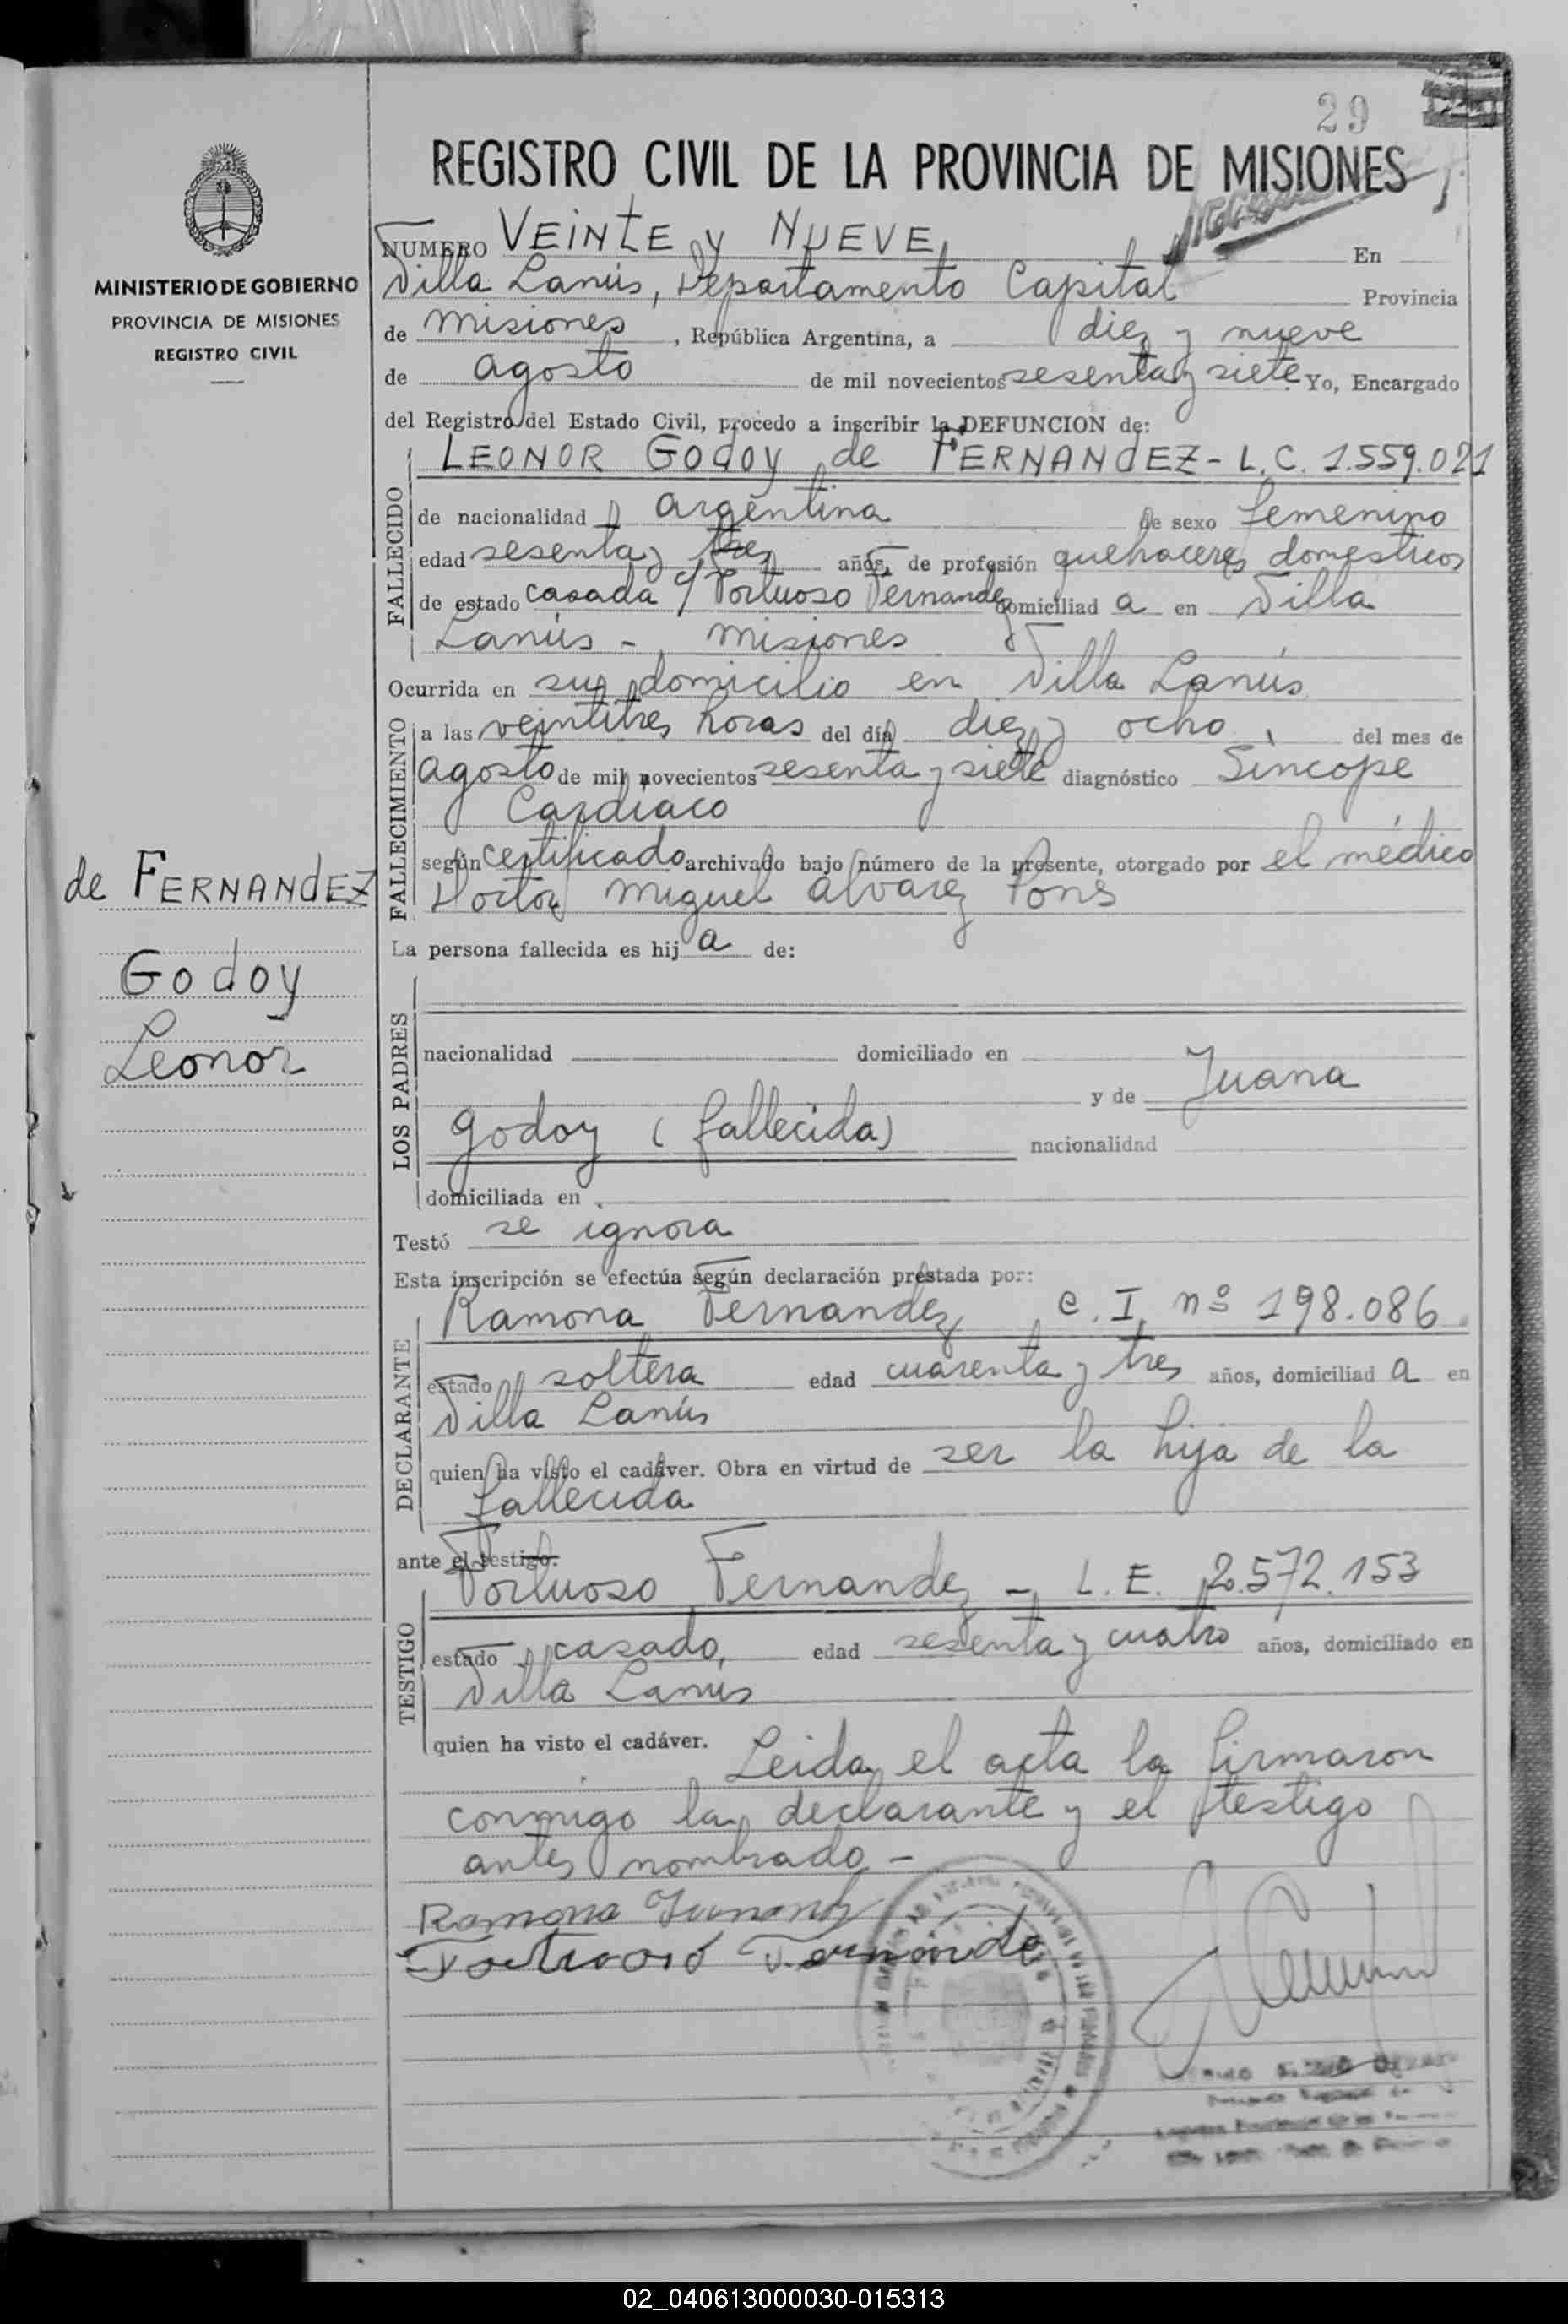 29
REGISTRO CIVIL DE LA PROVINCIA DE MISIONES
MINISTERIO DE GOBIERNO
PROVINCIA DE MISIONES
REGISTRO CIVIL
NUMERO VEINTE y NUEVE, En
Villa Lanús, Departamento Capital Provincia
de Misiones, República Argentina, a diez y nueve
de agosto de mil novecientos sesenta y siete Yo, Encargado
del Registro del Estado Civil, procedo a inscribir la DEFUNCION de:
LEONOR GODOY de FERNANdEZ - L.C. 1.559.021
FALLECIDO
de nacionalidad argentina de sexo femenino
edad sesenta y tres años, de profesión quehaceres domesticos
de estado casada c/ Tortuoso Fernandez domiciliad a en Villa
Lanús - Misiones
Ocurrida en su domicilio en Villa Lanús
FALLECIMIENTO
a las veintitres horas del día diez y ocho, del mes de
agosto de mil novecientos sesenta y siete diagnóstico Síncope
Cardiaco
según certificado archivado bajo número de la presente, otorgado por el médico
Doctor Miguel Alvarez Pons
de FERNANdEZ
Godoy
Leonor
La persona fallecida es hij a de:
LOS PADRES
nacionalidad domiciliado en
y de Juana
Godoy (fallecida) nacionalidad
domiciliada en
Testó se ignora
Esta inscripción se efectúa según declaración prestada por:
Ramona Fernandez C. I. nº 198.086
DECLARANTE
estado soltera edad cuarenta y tres años, domiciliad a en
Villa Lanús
quien ha visto el cadáver. Obra en virtud de ser la hija de la
fallecida
ante el testigo:
Tortuoso Fernandez - L. E. 2.572.153
TESTIGO
estado casado, edad sesenta y cuatro años, domiciliado en
Villa Lanus
quien ha visto el cadáver. Leida el acta la firmaron
conmigo la declarante y el testigo
antes nombrado -
Ramona Fernandez
Tortuoso Fernande
02_040613000030-015313